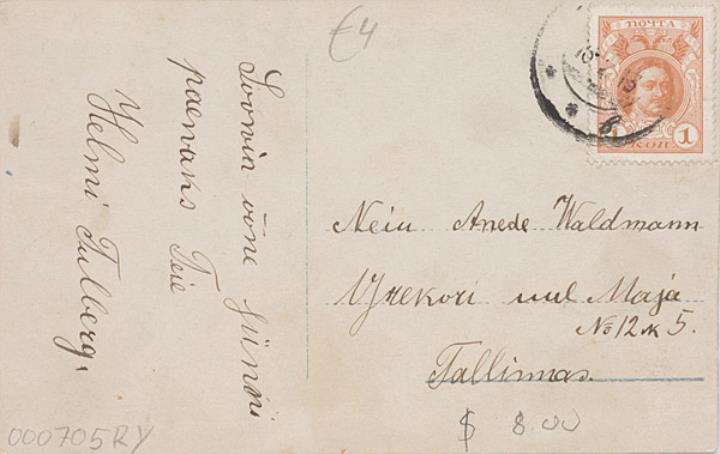 €4
Soovin õne sünni
paevaks Teie
Helmi Tulberg.
ПОЧТА
1 1
КОП.
Neiu Anede Waldmann
uul Maja
No 12 K 5.
Tallinnas.
$ 8.00
000705RY